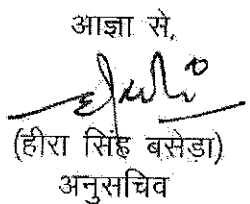 आज्ञा से,
(हीरा सिंह बसेडा)
अनुसचिव